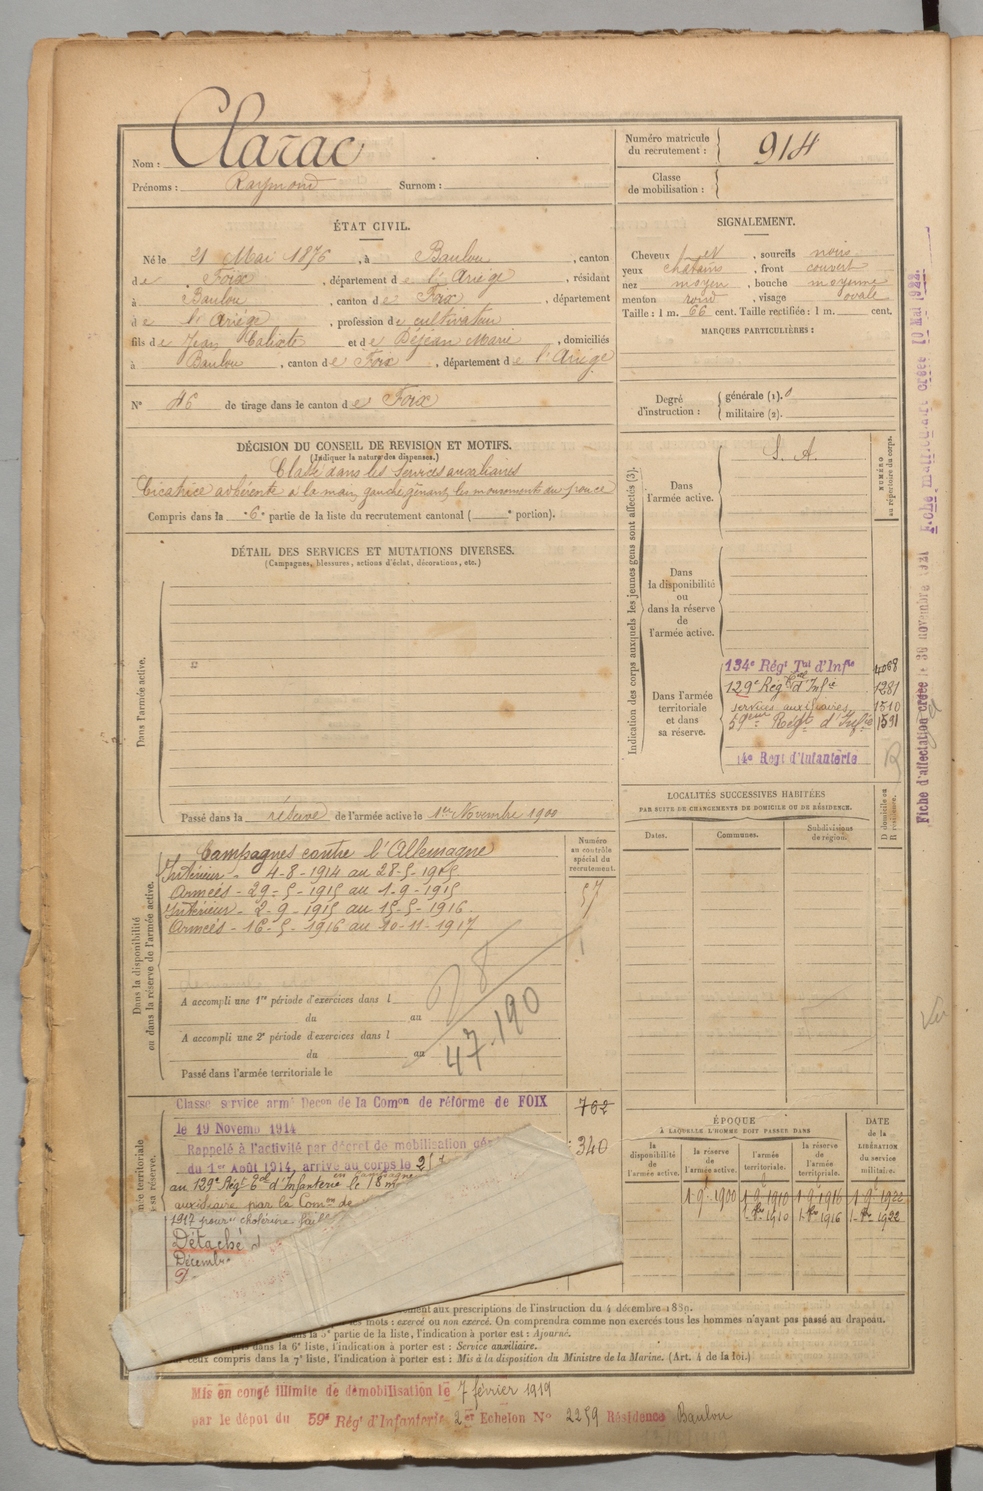 Nom : Clarac
Prénoms : Raymond Surnom :
Numéro matricule du recrutement : 914
Classe de mobilisation :
ÉTAT CIVIL.
Né le 21 Mai 1876, à Baulou, canton
de Foix, département de l'Ariège, résidant
à Baulou, canton de Foix, département
de l'Ariège, profession de cultivateur
fils de Jean Calixte et de Déjean Marie, domiciliés
à Baulou, canton de Foix, département de l'Ariège
N° 46 de tirage dans le canton de Foix
SIGNALEMENT.
Cheveux et, sourcils noirs
yeux chatains, front couvert
nez moyen, bouche moyenne
menton rond, visage ovale
Taille : 1 m. 66 cent. Taille rectifiée : 1 m. cent.
MARQUES PARTICULIÈRES :
Degré d'instruction : générale (1). 0
militaire (2).
DÉCISION DU CONSEIL DE REVISION ET MOTIFS.
(Indiquer la nature des dispenses.)
Classé dans les Services auxiliaires
Cicatrice adhérente à la main gauche gênant les mouvements du pouce
Compris dans la 6e partie de la liste du recrutement cantonal ( e portion).
DÉTAIL DES SERVICES ET MUTATIONS DIVERSES.
(Campagnes, blessures, actions d'éclat, décorations, etc.)
Dans l'armée active.
Passé dans la réserve de l'armée active le 1er Novembre 1900
Indication des corps auxquels les jeunes gens sont affectés (3).
NUMÉRO au répertoire du corps.
Dans l'armée active.
S. A.
Dans la disponibilité ou dans la réserve de l'armée active.
Dans l'armée territoriale et dans sa réserve.
134e Régt Tial d'Infie 4068
129e Régt Tal d'Infie 1281
services auxiliaires 1510
59ème Régt d'Infie 1591
14e Regt d'Infanterie
Dans la disponibilité ou dans la réserve de l'armée active.
Campagnes contre l'Allemagne
Intérieur - 4-8-1914 au 28-5-1915
Armées - 29-5-1915 au 1-9-1915
Intérieur - 2-9-1915 au 15-5-1916
Armées - 16-5-1916 au 10-11-1917
Numéro au contrôle spécial du recrutement.
57
A accompli une 1re période d'exercices dans l
du au
A accompli une 2e période d'exercices dans l
du au
47.190
Passé dans l'armée territoriale le
LOCALITÉS SUCCESSIVES HABITÉES
PAR SUITE DE CHANGEMENTS DE DOMICILE OU DE RÉSIDENCE.
Dates. Communes. Subdivisions de région. D domicile ou R résidence.
Classé service armé Décon de la Comon de réforme de FOIX 762
le 19 Novemo 1914
Rappelé à l'activité par décret de mobilisation 340
du 1er Août 1914, arrivé au corps le
au 129e Régt Tal d'Infanterie le 18
auxiliaire par la Comon de
1917 pour cholérine
Détaché
Décembre
ÉPOQUE
À LAQUELLE L'HOMME DOIT PASSER DANS
la disponibilité de l'armée active.
la réserve de l'armée active.
l'armée territoriale.
la réserve de l'armée territoriale.
DATE de la LIBÉRATION du service militaire.
1-9-1900 1-9-1910 1-9-1916 1-9-1922
1-8bre-1910 1-8bre-1916 1-8bre-1922
aux prescriptions de l'instruction du 4 décembre 1889.
mots : exercé ou non exercé. On comprendra comme non exercés tous les hommes n'ayant pas passé au drapeau.
dans la 5e partie de la liste, l'indication à porter est : Ajourné.
dans la 6e liste, l'indication à porter est : Service auxiliaire.
ceux compris dans la 7e liste, l'indication à porter est : Mis à la disposition du Ministre de la Marine. (Art. 4 de la loi.)
Mis en congé illimité de démobilisation le 7 février 1919
par le dépôt du 59e Régt d'Infanterie 2er Echelon N° 2259 Résidence Baulou
Fiche d'affectation créée le 30 novembre 1921
Fiche matricule créée 10 Mai 1922.